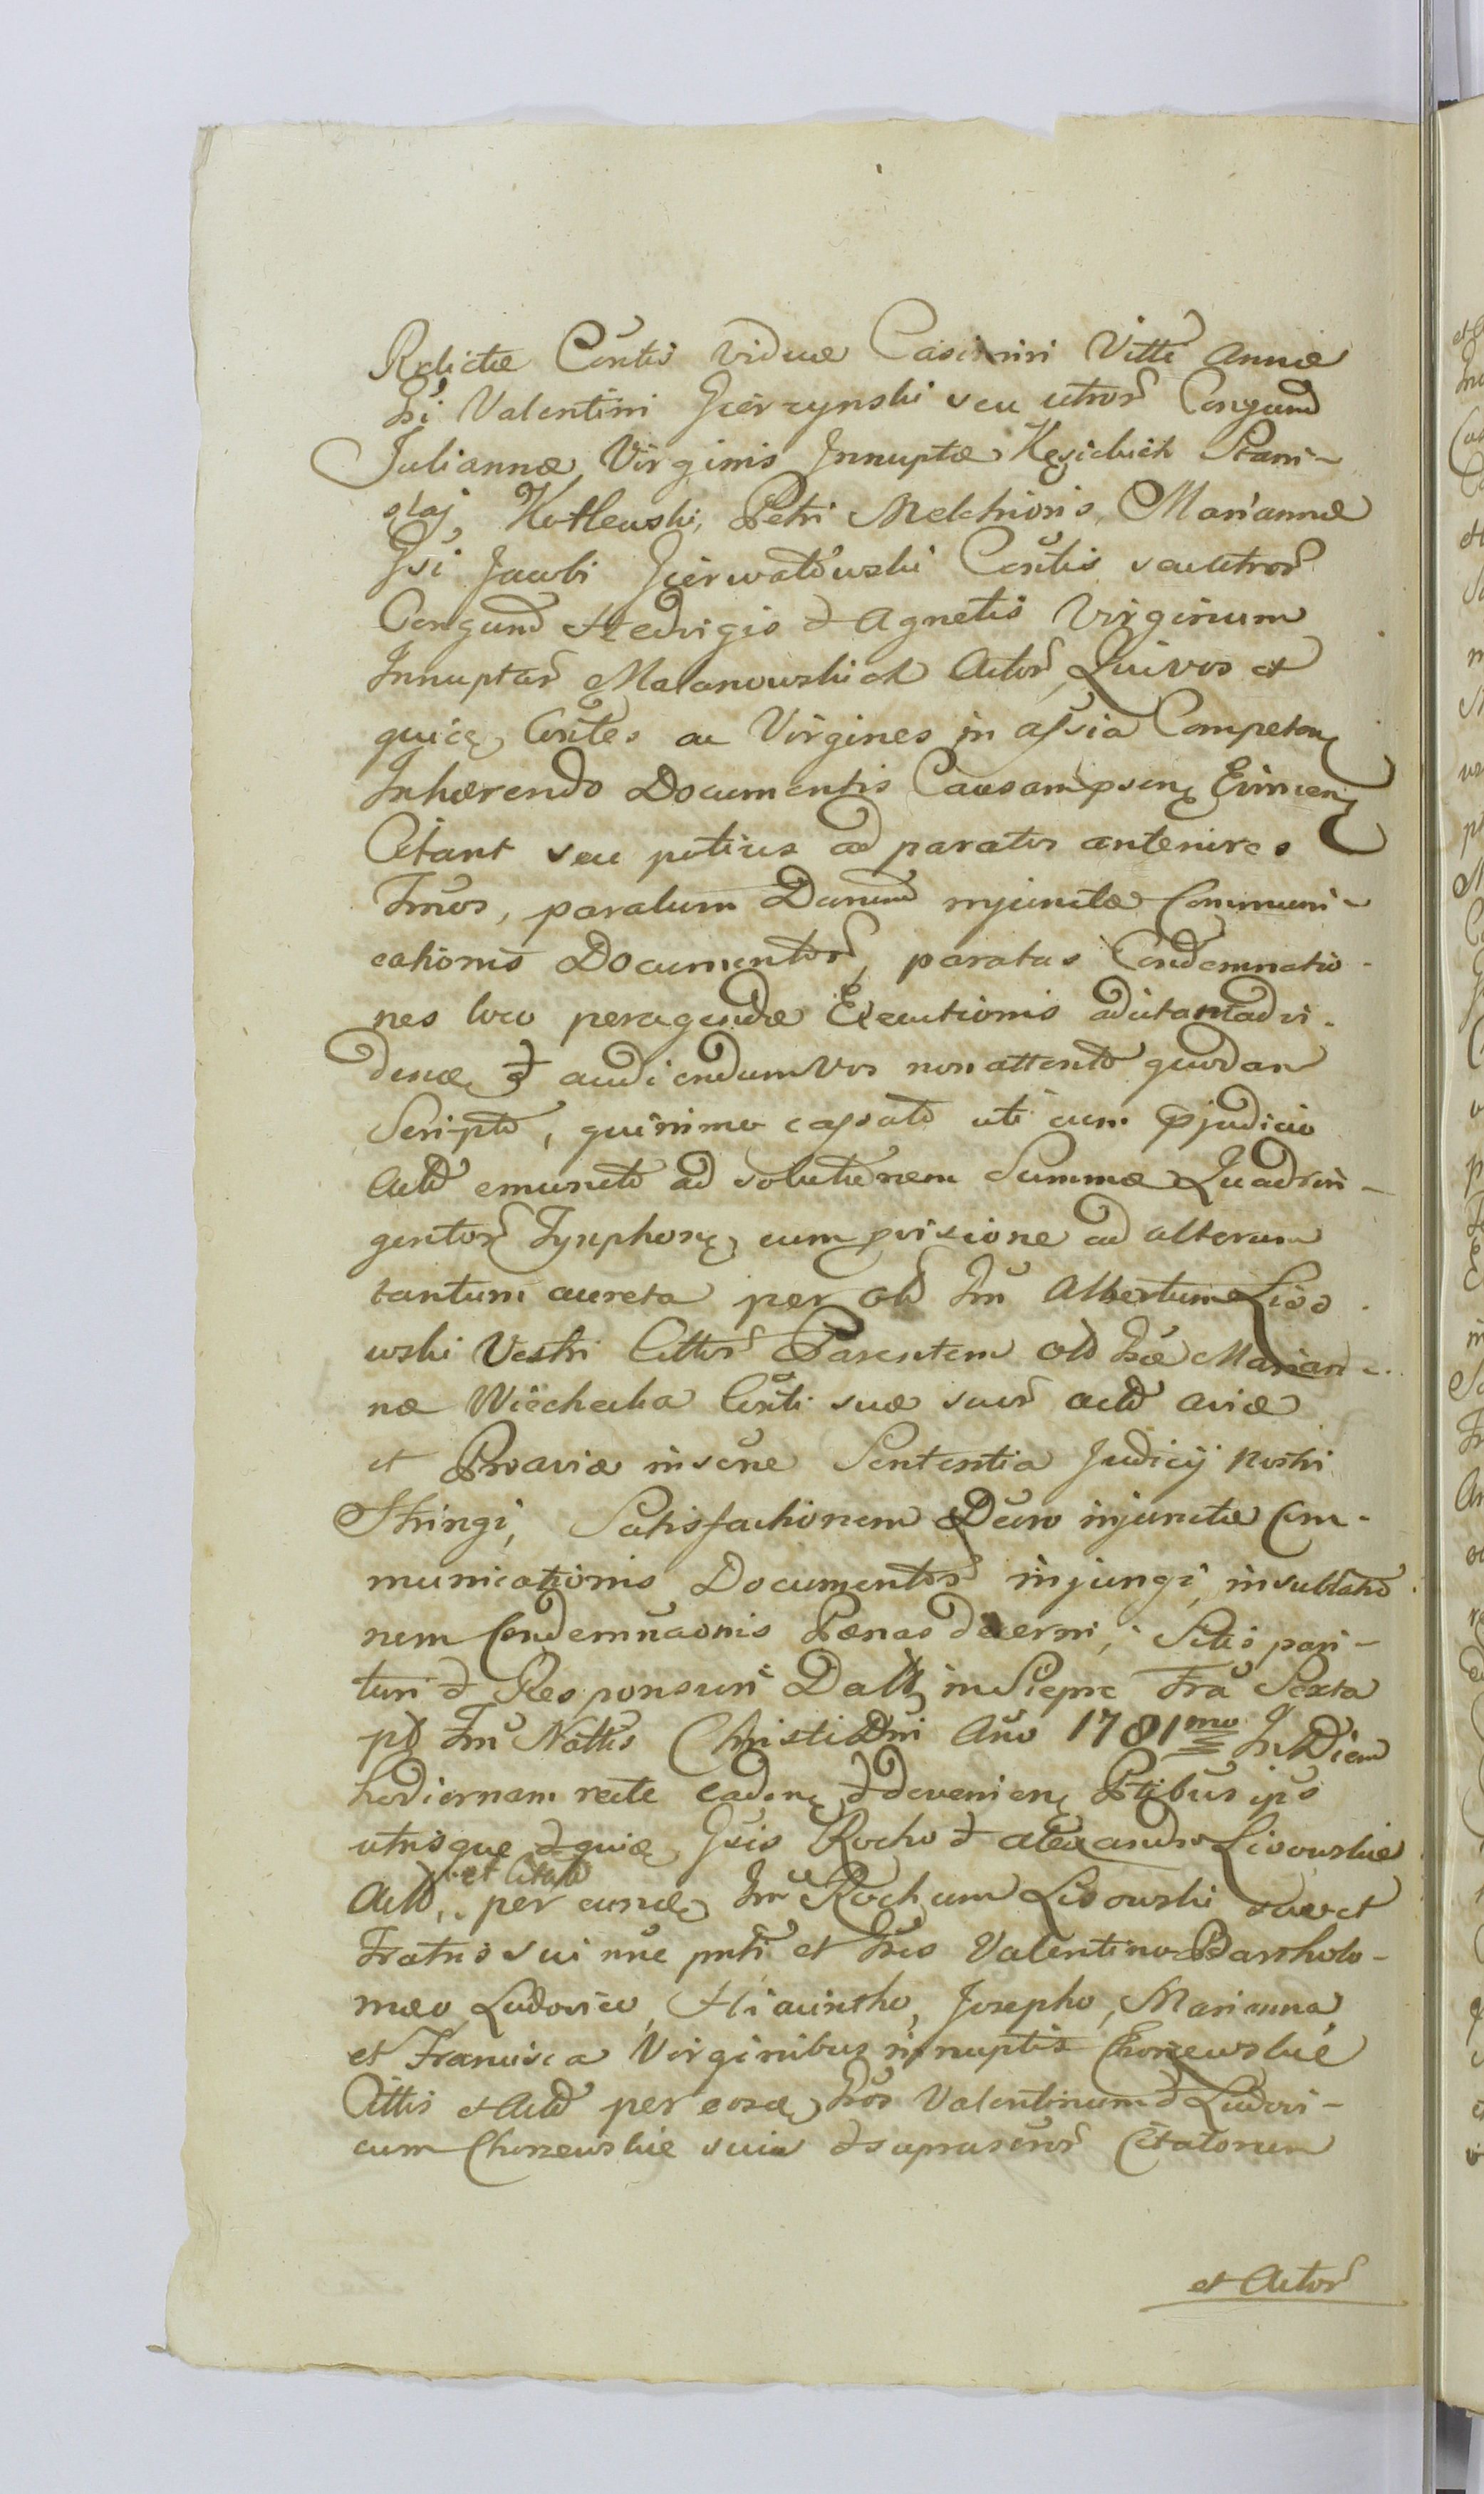 Relictæ Contis viduæ Casimiri Vitte Annæ
Gsi Valentini Gierzynski seu utror Congund
Juliannæ Virginis Innuptæ Kęsickich Stani-
slaj Kotlewski, Petri Melchioris, Mariannæ
Gsi Jacobi Gierwatowski Contis seu utror
Congund Hedvigis & Agnetis Virginum
Innuptar Malanowskich Actor, Quivos et
quicq Contes ac Virgines in assia Competen
Inhærendo Documentis Causam ipsen Evincen
Citant seu potius ad paratos anteriores
Tmos, paratum Danund injunctæ Communi-
cationis Documentor, paratas Condemnatio-
nes loco peragendæ Executionis adcitant ad vi-
denq & audiendum Vos non attento quodam
Scripto, quinimo cassato uti cum pjudicio
Acto emuncto ad solutionem Summæ Quadrin-
gentor Tynphon, cum pvisione ad alterum
tantum aucreta per olb Gm Albertum Liso-
wski Vestri Cittor Parentem olb Gsæ Marian-
næ Wiechecka Conti suæ suor actor aviæ
et Proaviæ inscne Sententia Judicij Nostri
Stringi, Satisfactionem Decro injunctæ Com-
municationis Documentor injungi, insublatio-
nem Condemnaonis Pænas decerni, Sitis pari-
turi & Responsuri Datt in Sieprc Fra Sexta
pd Fm Nattis Christi Dni Ano 1781mo In Diem
hodiernam recte caden & devenien Ptibus ips
utrisque & quiæ Gsis Rocho & Alexandro Lisowskie
Actb et Citatb per eunde Gm Rochum Lisowski suo et
Fratris sui nne pnti et Gsis Valentino Bartholo-
mæo, Ludovico, Hiacintho, Josepho, Marianna
et Francisca Virginibus innuptis Chorzewskie
Cittis & Actb per eosd Gsos Valentinum & Ludovi-
cum Chorzewskie suis & suprascror Citatorum
et Actor